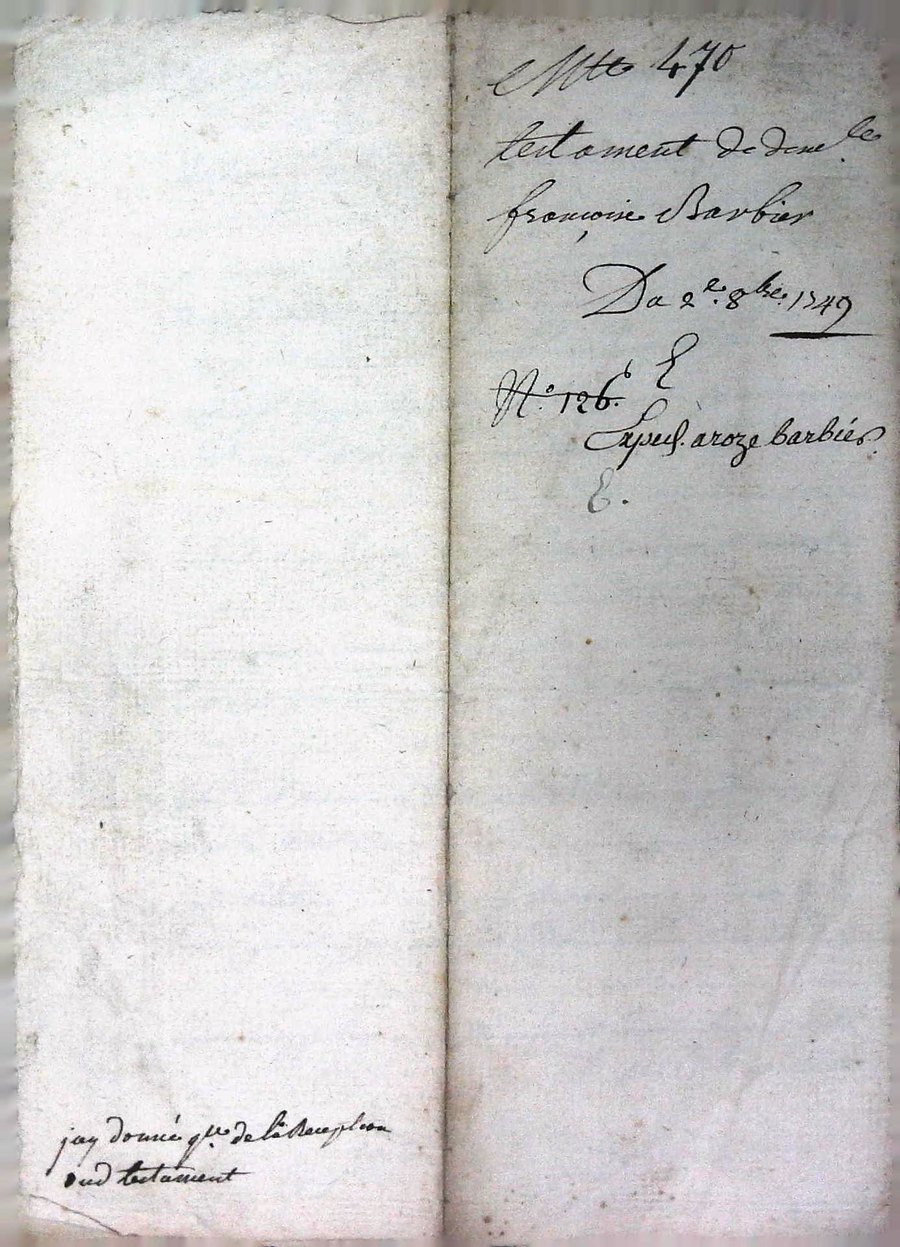 Mtte 470
testament de dmelle
françoise Barbier
Du 2e. 8bre. 1749
N.o 126.
Exped. a roze barbiér.
E.
jay donné qtte de la Reception
dud testament